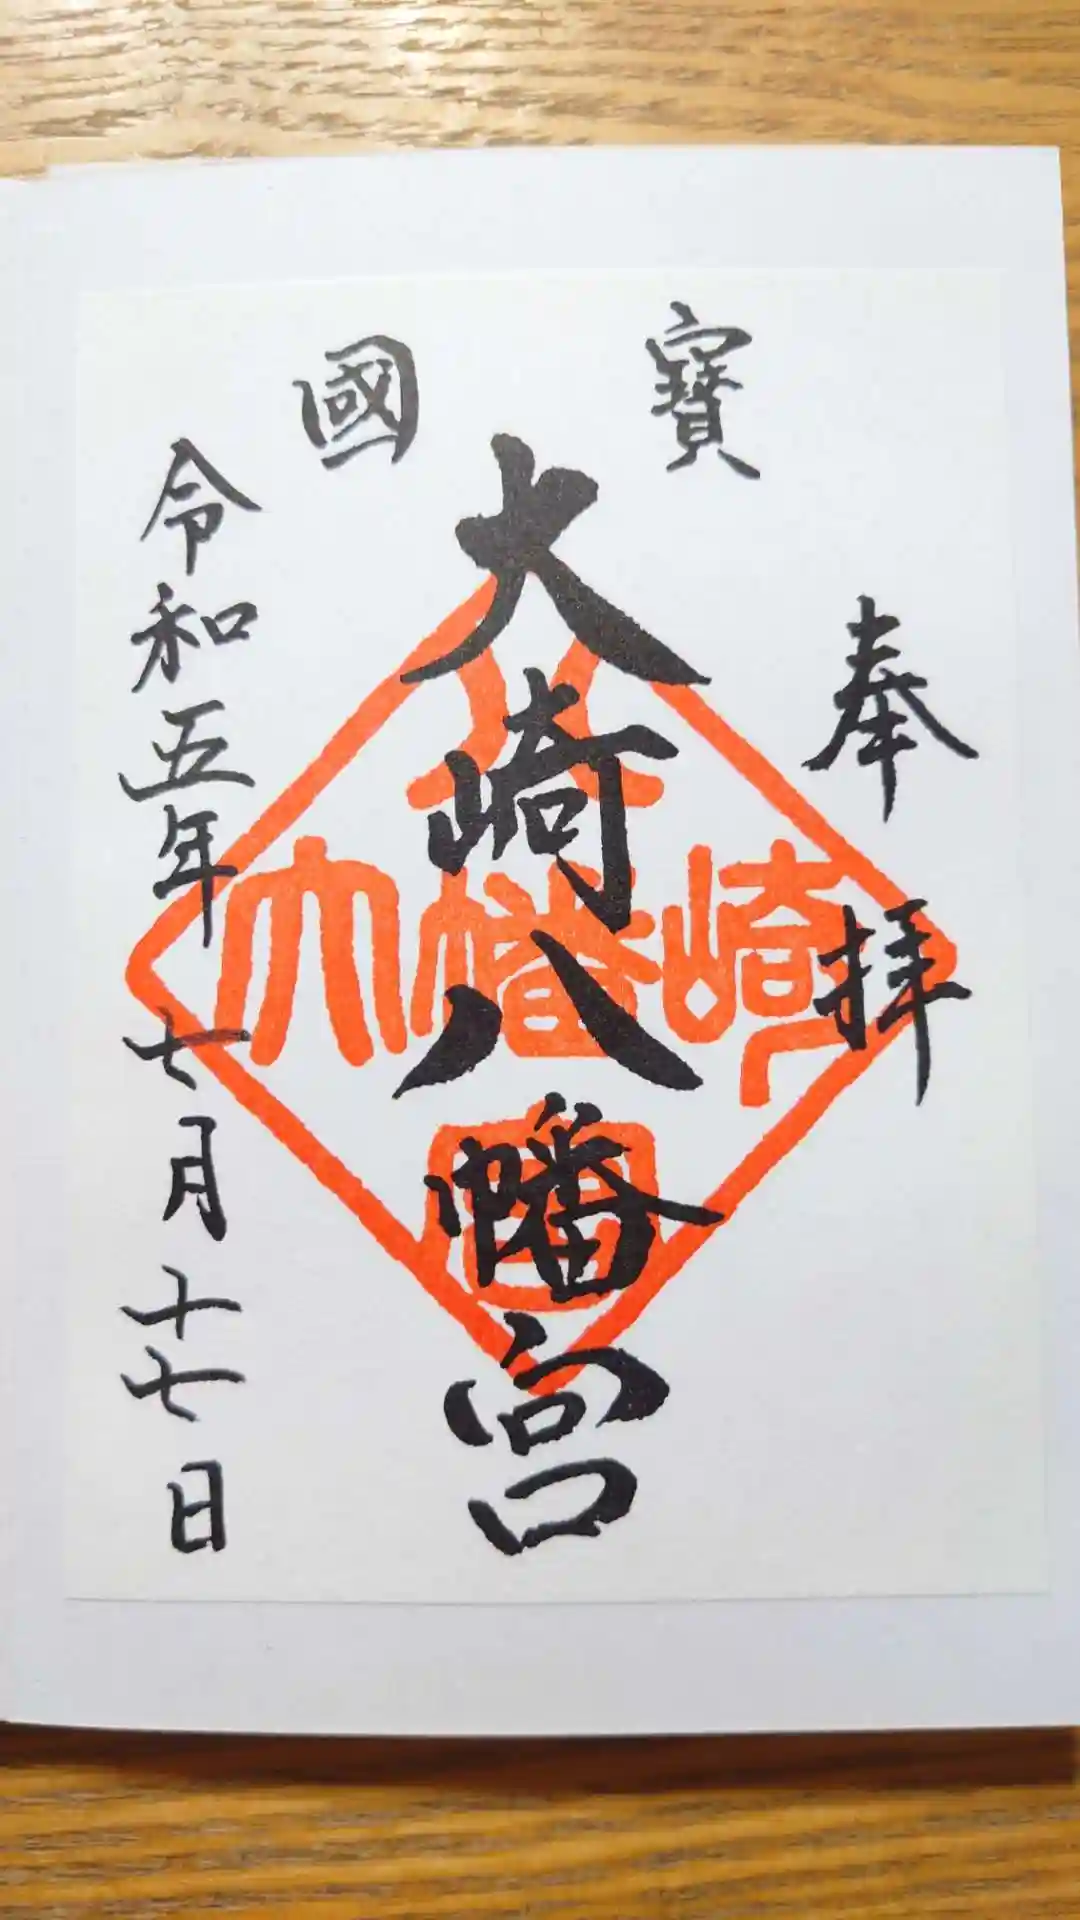 奉拝
國寶
大崎八幡宮
令和五年七月十七日
八
大幡崎
宮